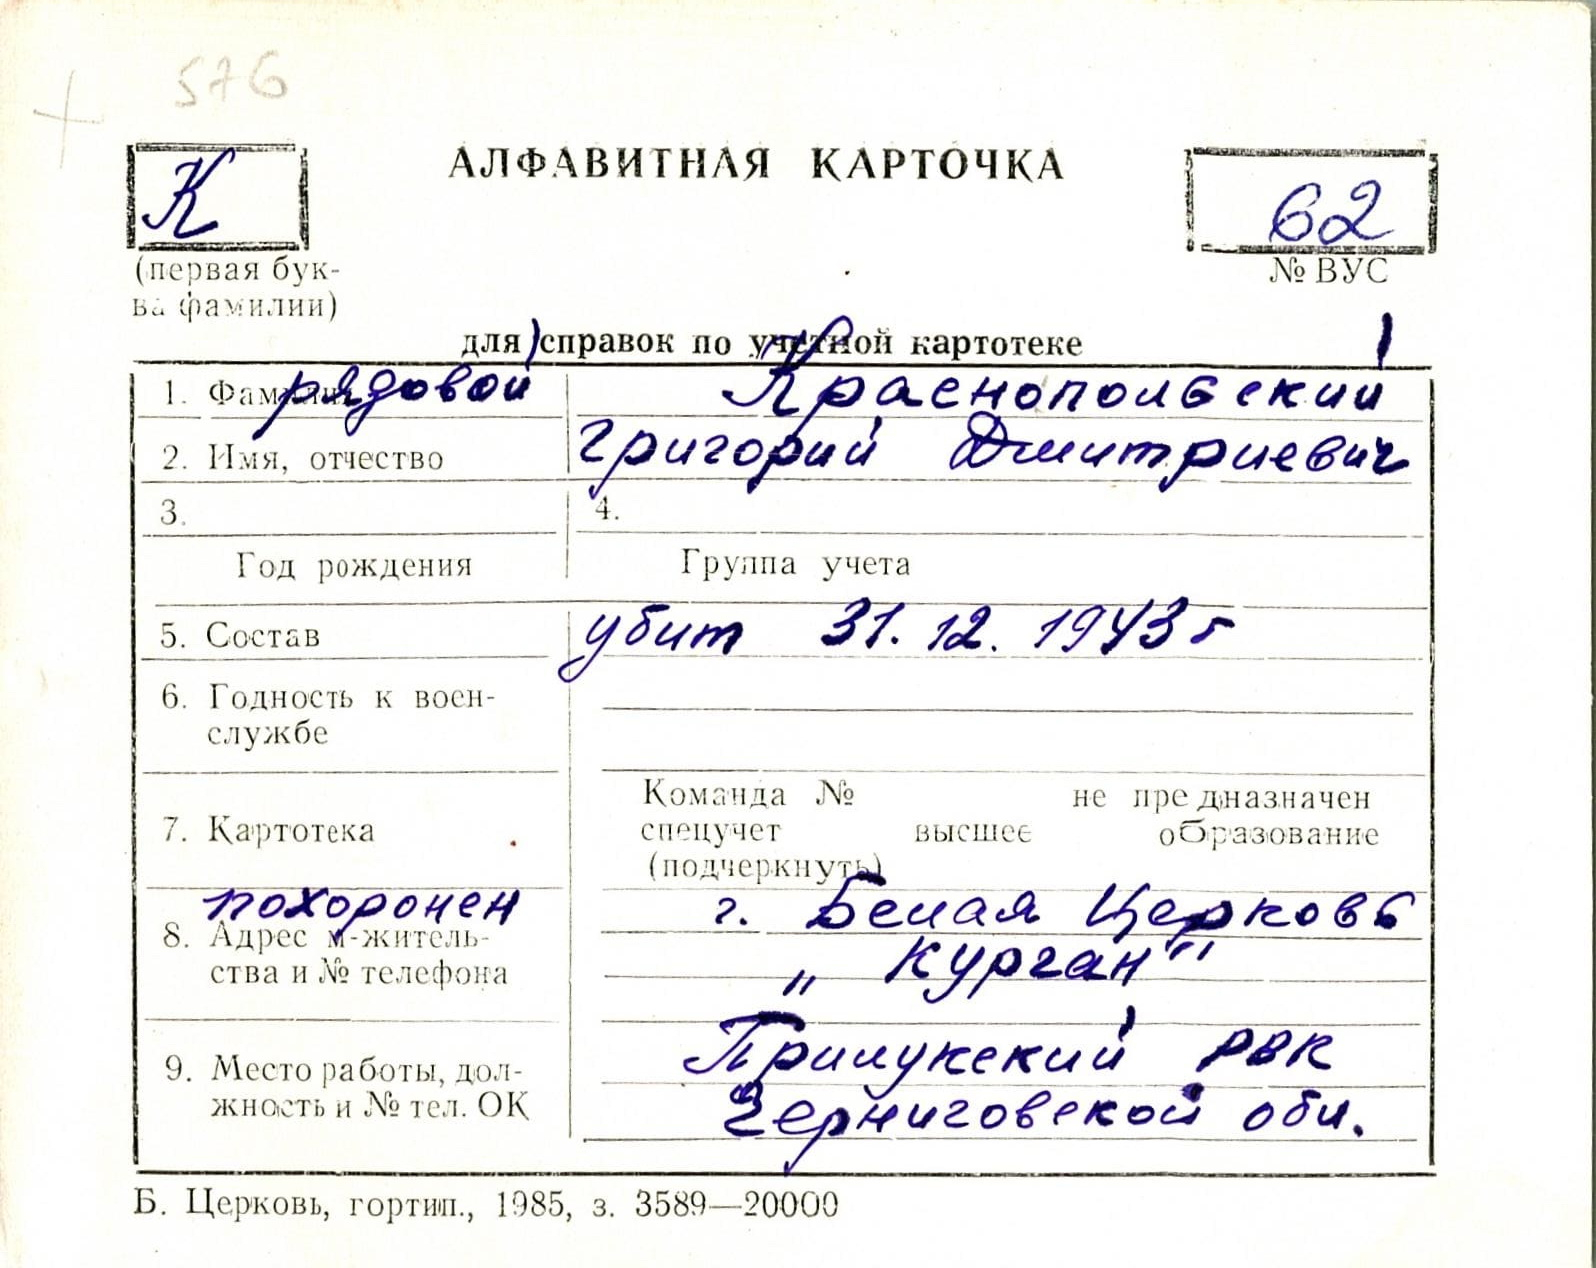 576
К
АЛФАВИТНАЯ КАРТОЧКА
62
(первая бук-
ва фамилии)
№ ВУС
для справок по учетной картотеке
1. Фамилия рядовой Краснопольский
2. Имя, отчество Григорий Дмитриевич
3. 4.
Год рождения Группа учета
5. Состав убит 31. 12. 1943 г
6. Годность к воен-
службе
Команда № не предназначен
7. Картотека спецучет высшее образование
(подчеркнуть)
похоронен г. Белая Церковь
8. Адрес м-житель-
ства и № телефона „Курган"
Прилукский РВК
9. Место работы, дол-
жность и № тел. ОК Черниговской обл.
Б. Церковь, гортип., 1985, з. 3589—20000